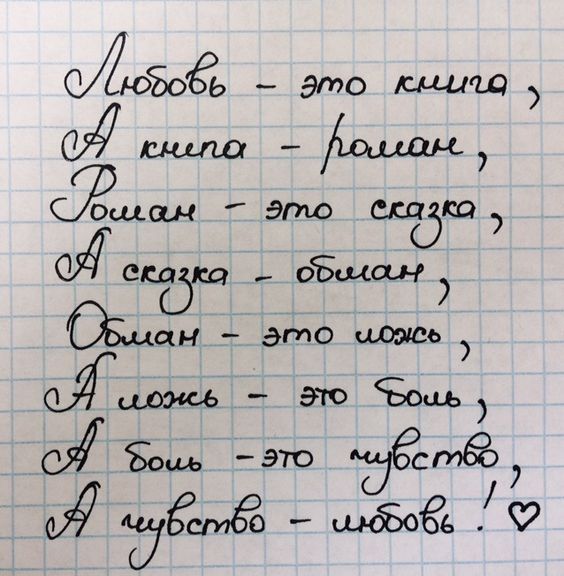 Любовь - это книга,
А книга - роман,
Роман - это сказка,
А сказка - обман,
Обман - это ложь,
А ложь - это боль,
А боль - это чувство,
А чувство - любовь! ♡